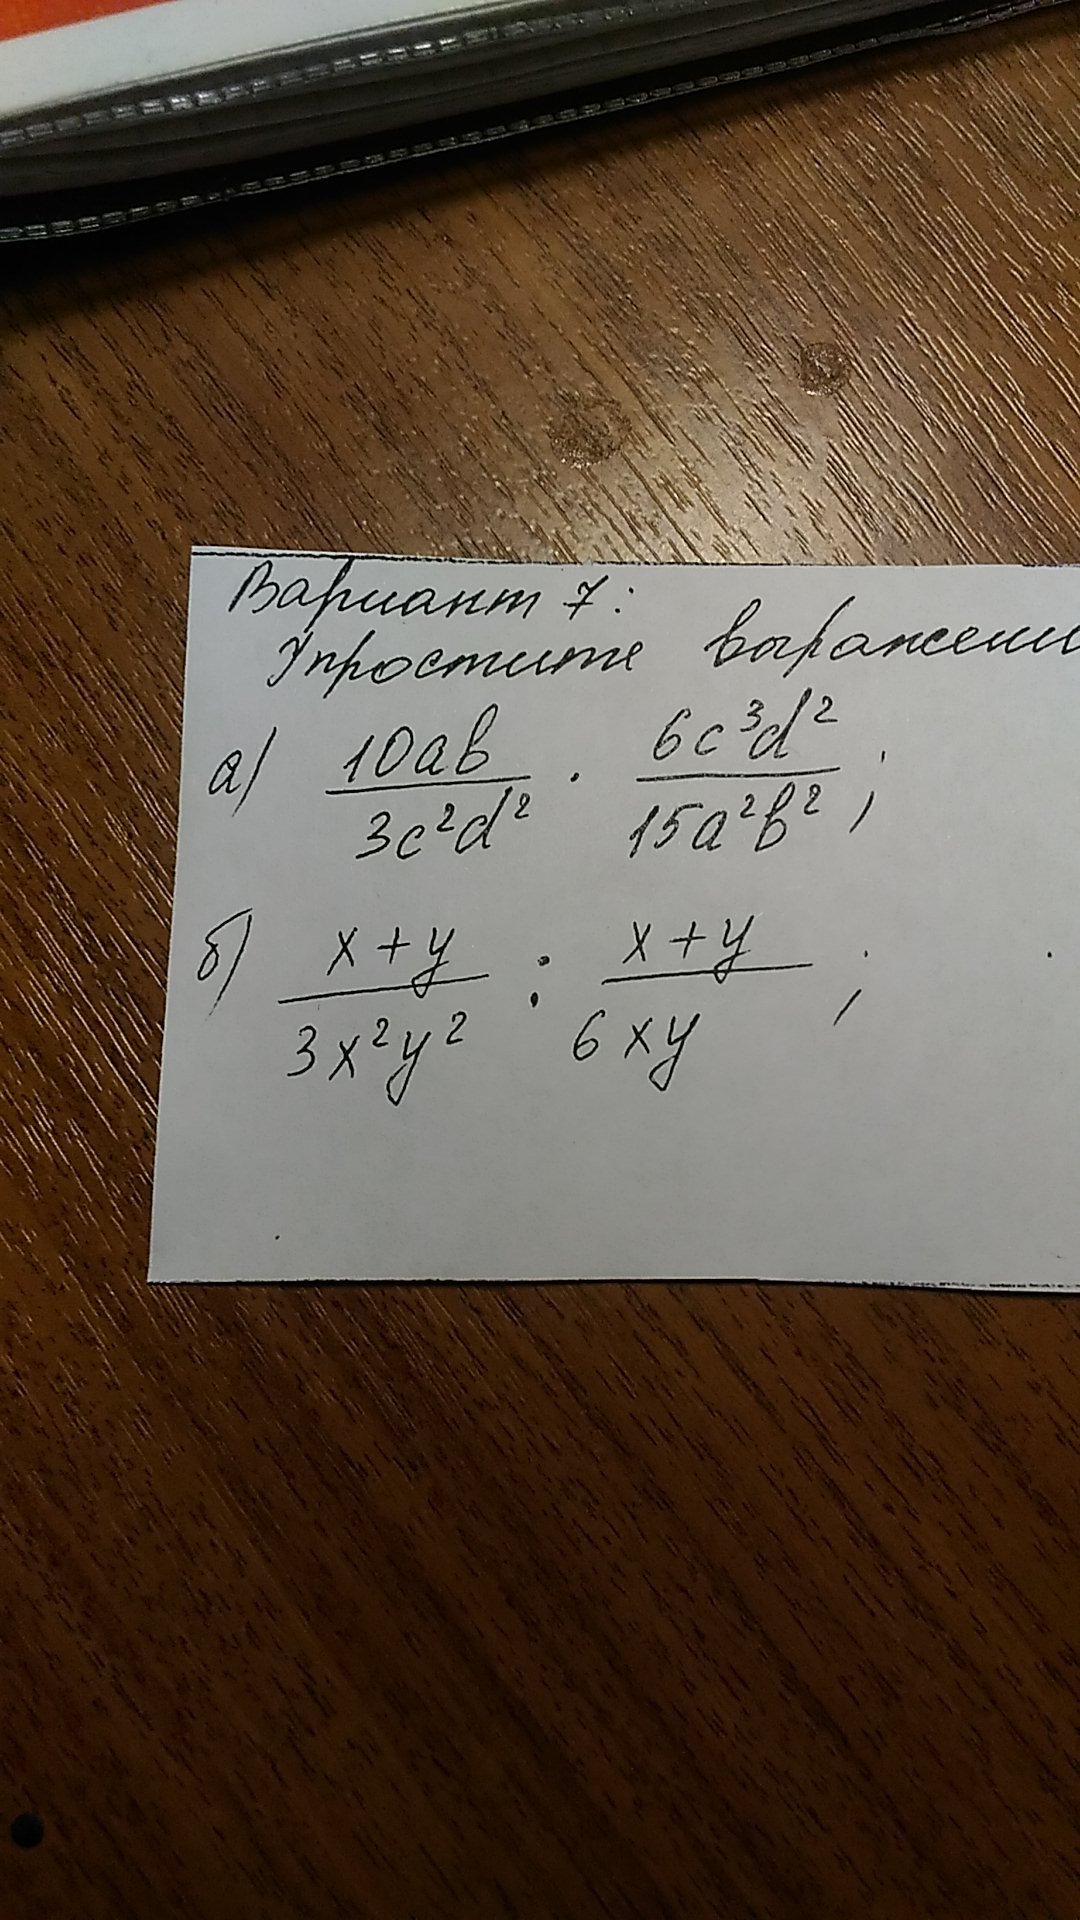 Вариант 7:
Упростите выражени
а) 10ab / 3c²d² · 6c³d² / 15a²b² ;
б) x+y / 3x²y² : x+y / 6xy ;